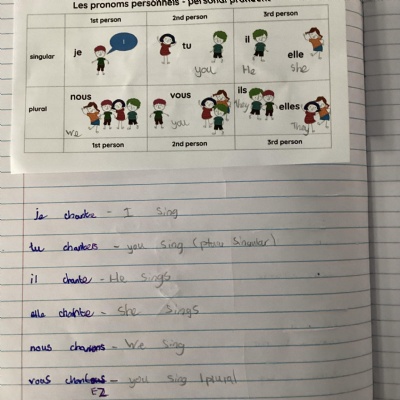 Les pronoms personnels - personal pronouns
1st person 2nd person 3rd person
singular je I tu you il He elle she
plural nous We vous you ils they elles They
1st person 2nd person 3rd person
je chante - I sing
tu chantes - you sing ( singular)
il chante - He sings
elle chante - She sings
nous - We sing
vous - you sing (plural
EZ